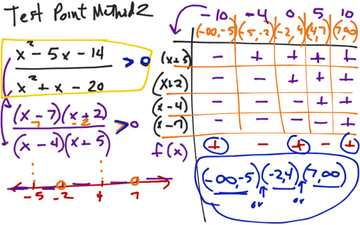 Test Point Method 2
x² - 5x - 14
x² + x - 20
> 0
(x - 7)(x + 2)
7 -2
(x - 4)(x + 5)
> 0
-5 -2 4 7
-10 -4 0 5 10
(-∞, -5) (-5, -2) (-2, 4) (4, 7) (7, ∞)
(x+5) - + + + +
(x+2) - - + + +
(x-4) - - - + +
(x-7) - - - - +
f(x) + - + - +
(-∞, -5) (-2, 4) (7, ∞)
or or